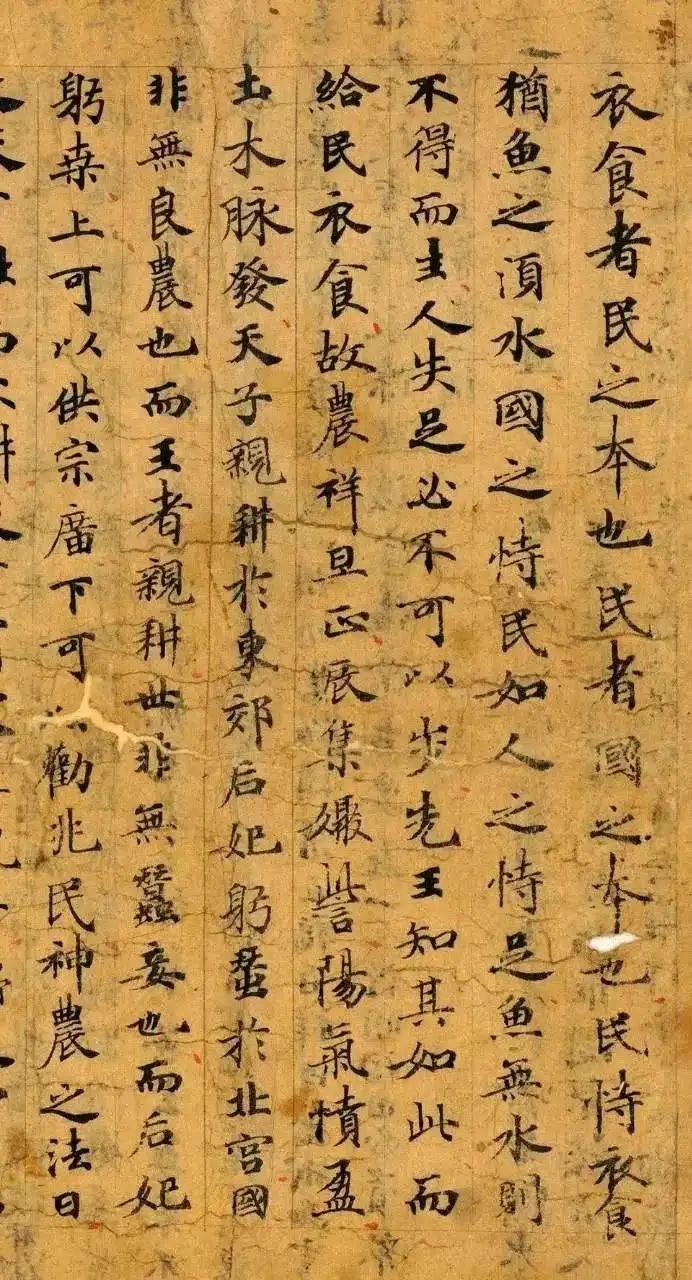 衣食者民之本也民者國之本也民恃衣食
猶魚之湏水國之恃民如人之恃足魚無水則
不得而生人失足必不可以步先王知其如此而
給民衣食故農祥旦正辰集娵訾陽氣憤盈
土木脉發天子親耕於東郊后妃躬蚕於北宮國
非無良農也而王者親耕世非無蠶妾也而后妃
躬桒上可以供宗廟下可以勸兆民神農之法曰